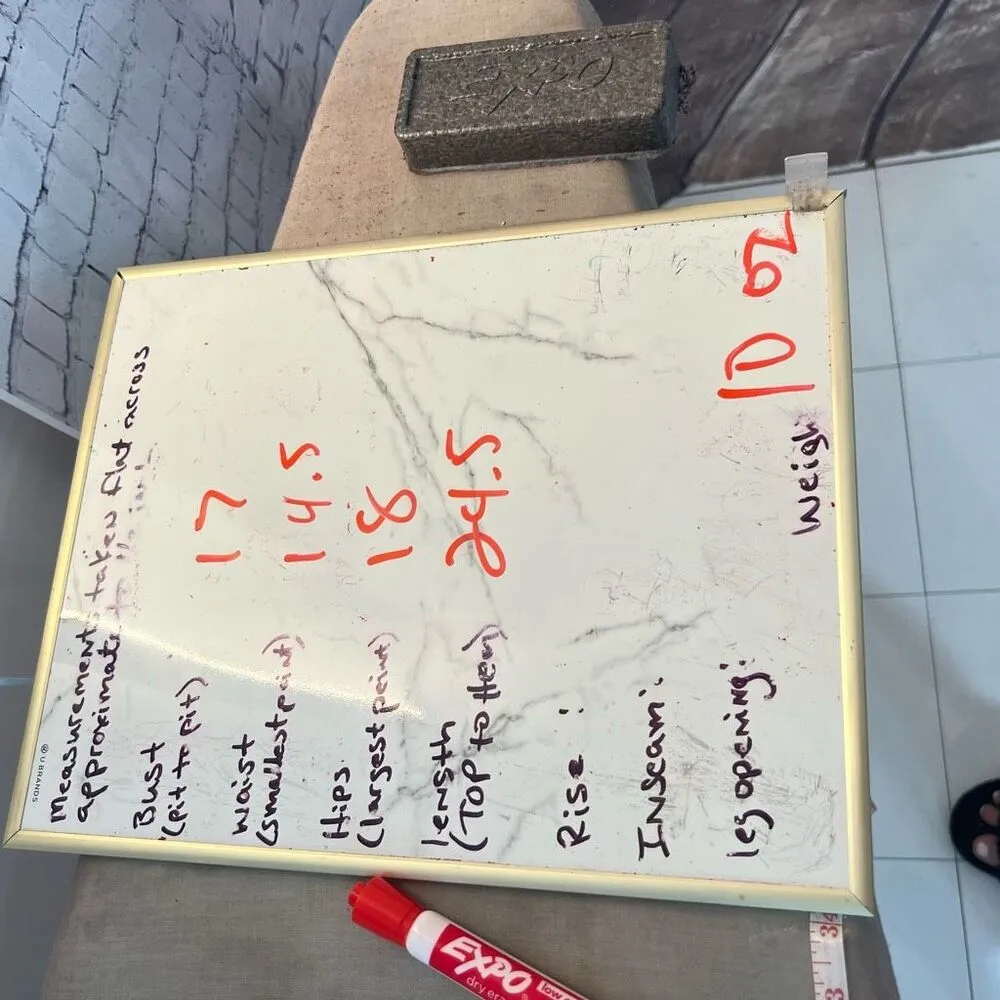 Measurements taken flat across
approximate to the inch
Bust 17
(pit to pit)
Waist 14.5
(smallest point)
Hips 18
(largest point)
length 24.5
(Top to Hem)
Rise :
Inseam:
leg opening:
Weigh 10 oz
U BRANDS
EXPO
EXPO
dry era
low
34
3